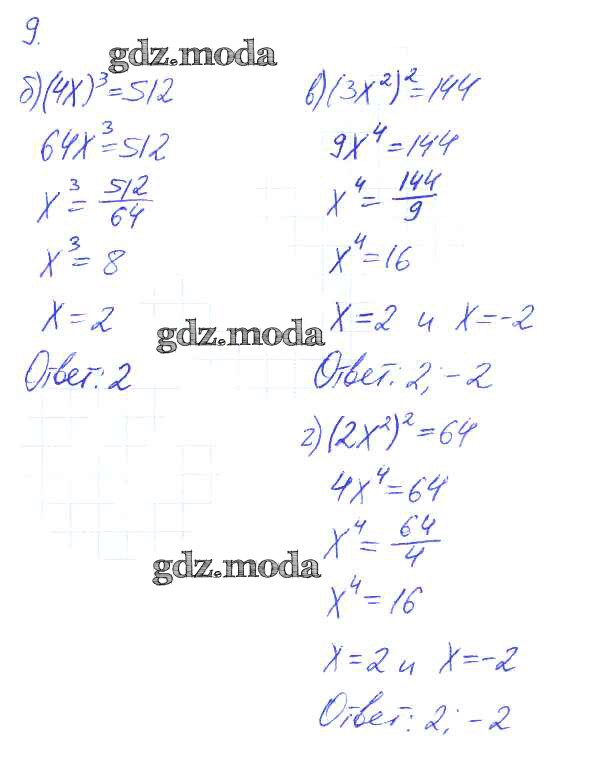 9.
gdz.moda
б) (4x)³ = 512
64x³ = 512
x³ = 512/64
x³ = 8
x = 2
Ответ: 2
в) (3x²)² = 144
9x⁴ = 144
x⁴ = 144/9
x⁴ = 16
x = 2 и x = -2
gdz.moda
Ответ: 2; -2
г) (2x²)² = 64
4x⁴ = 64
x⁴ = 64/4
gdz.moda
x⁴ = 16
x = 2 и x = -2
Ответ: 2; -2